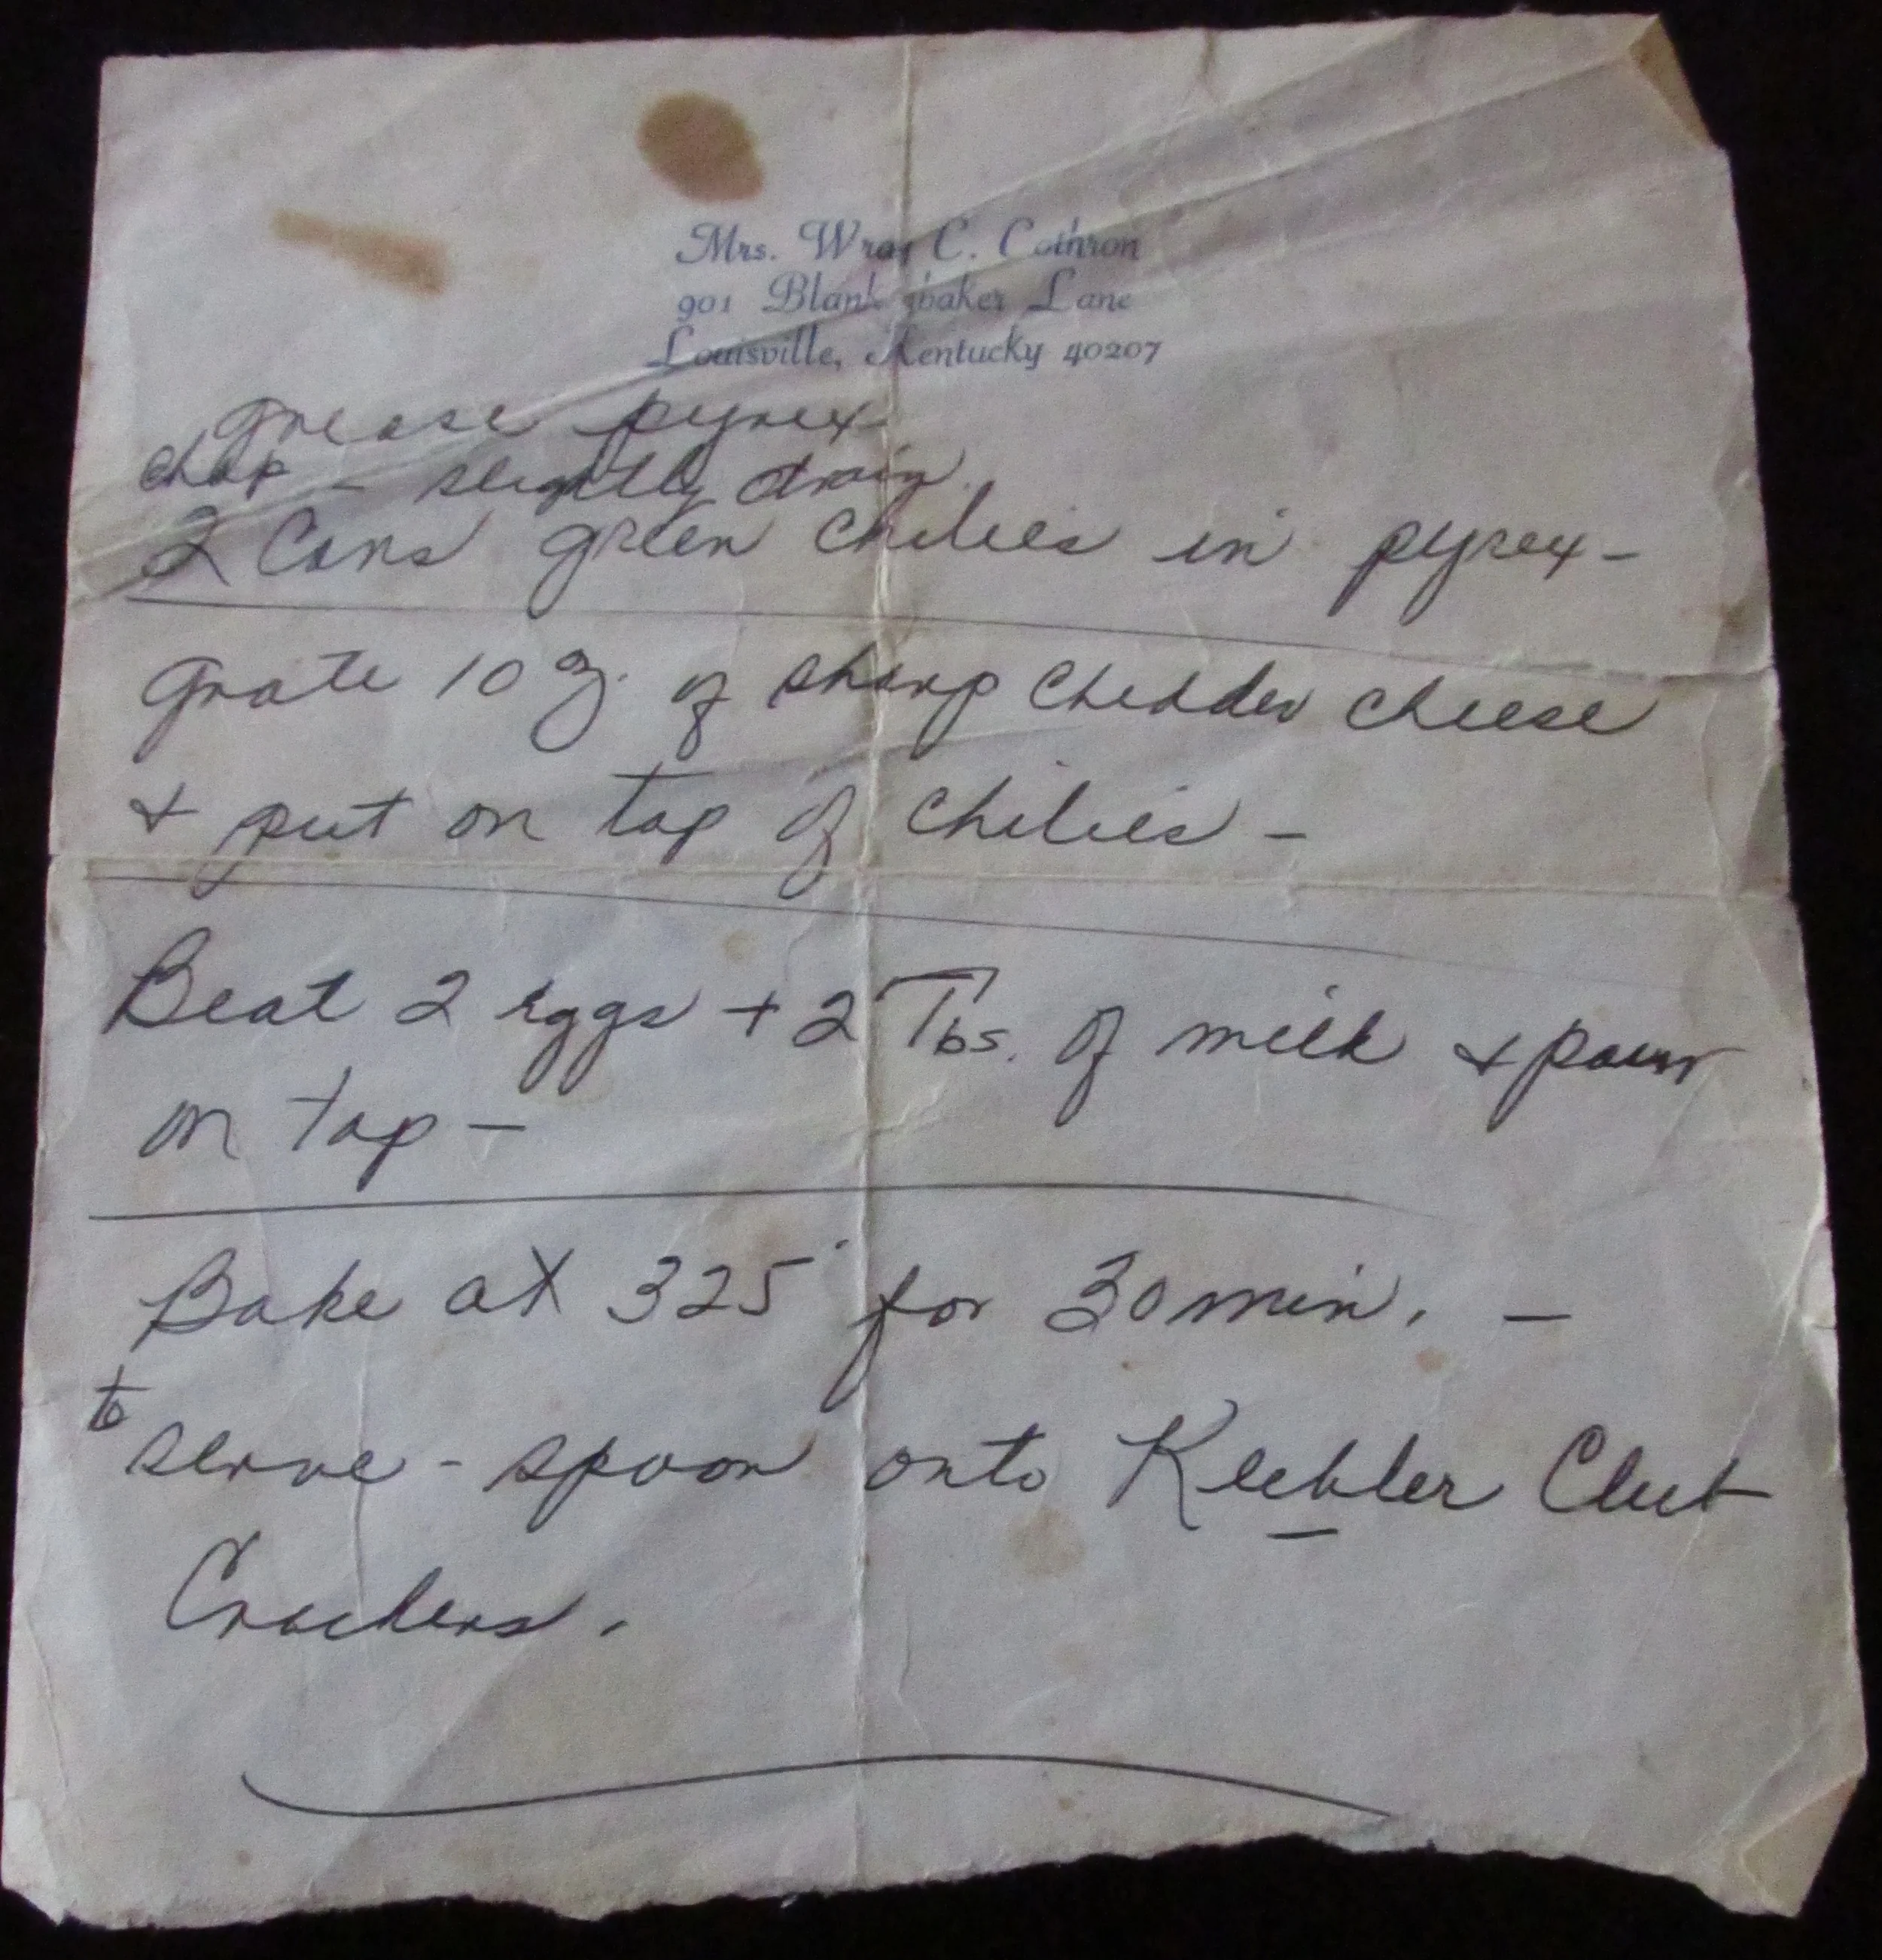 Mrs. Wray C. Cothron
901 Blankenbaker Lane
Louisville, Kentucky 40207
grease pyrex
chop - slightly drain
2 Cans green chilies in pyrex -
grate 10 oz. of sharp chedder cheese
+ put on top of chilies -
Beat 2 eggs + 2 Tbs. of milk + pour
on top -
Bake at 325° for 30 min. -
to
serve - spoon onto Keebler Club
Crackers.